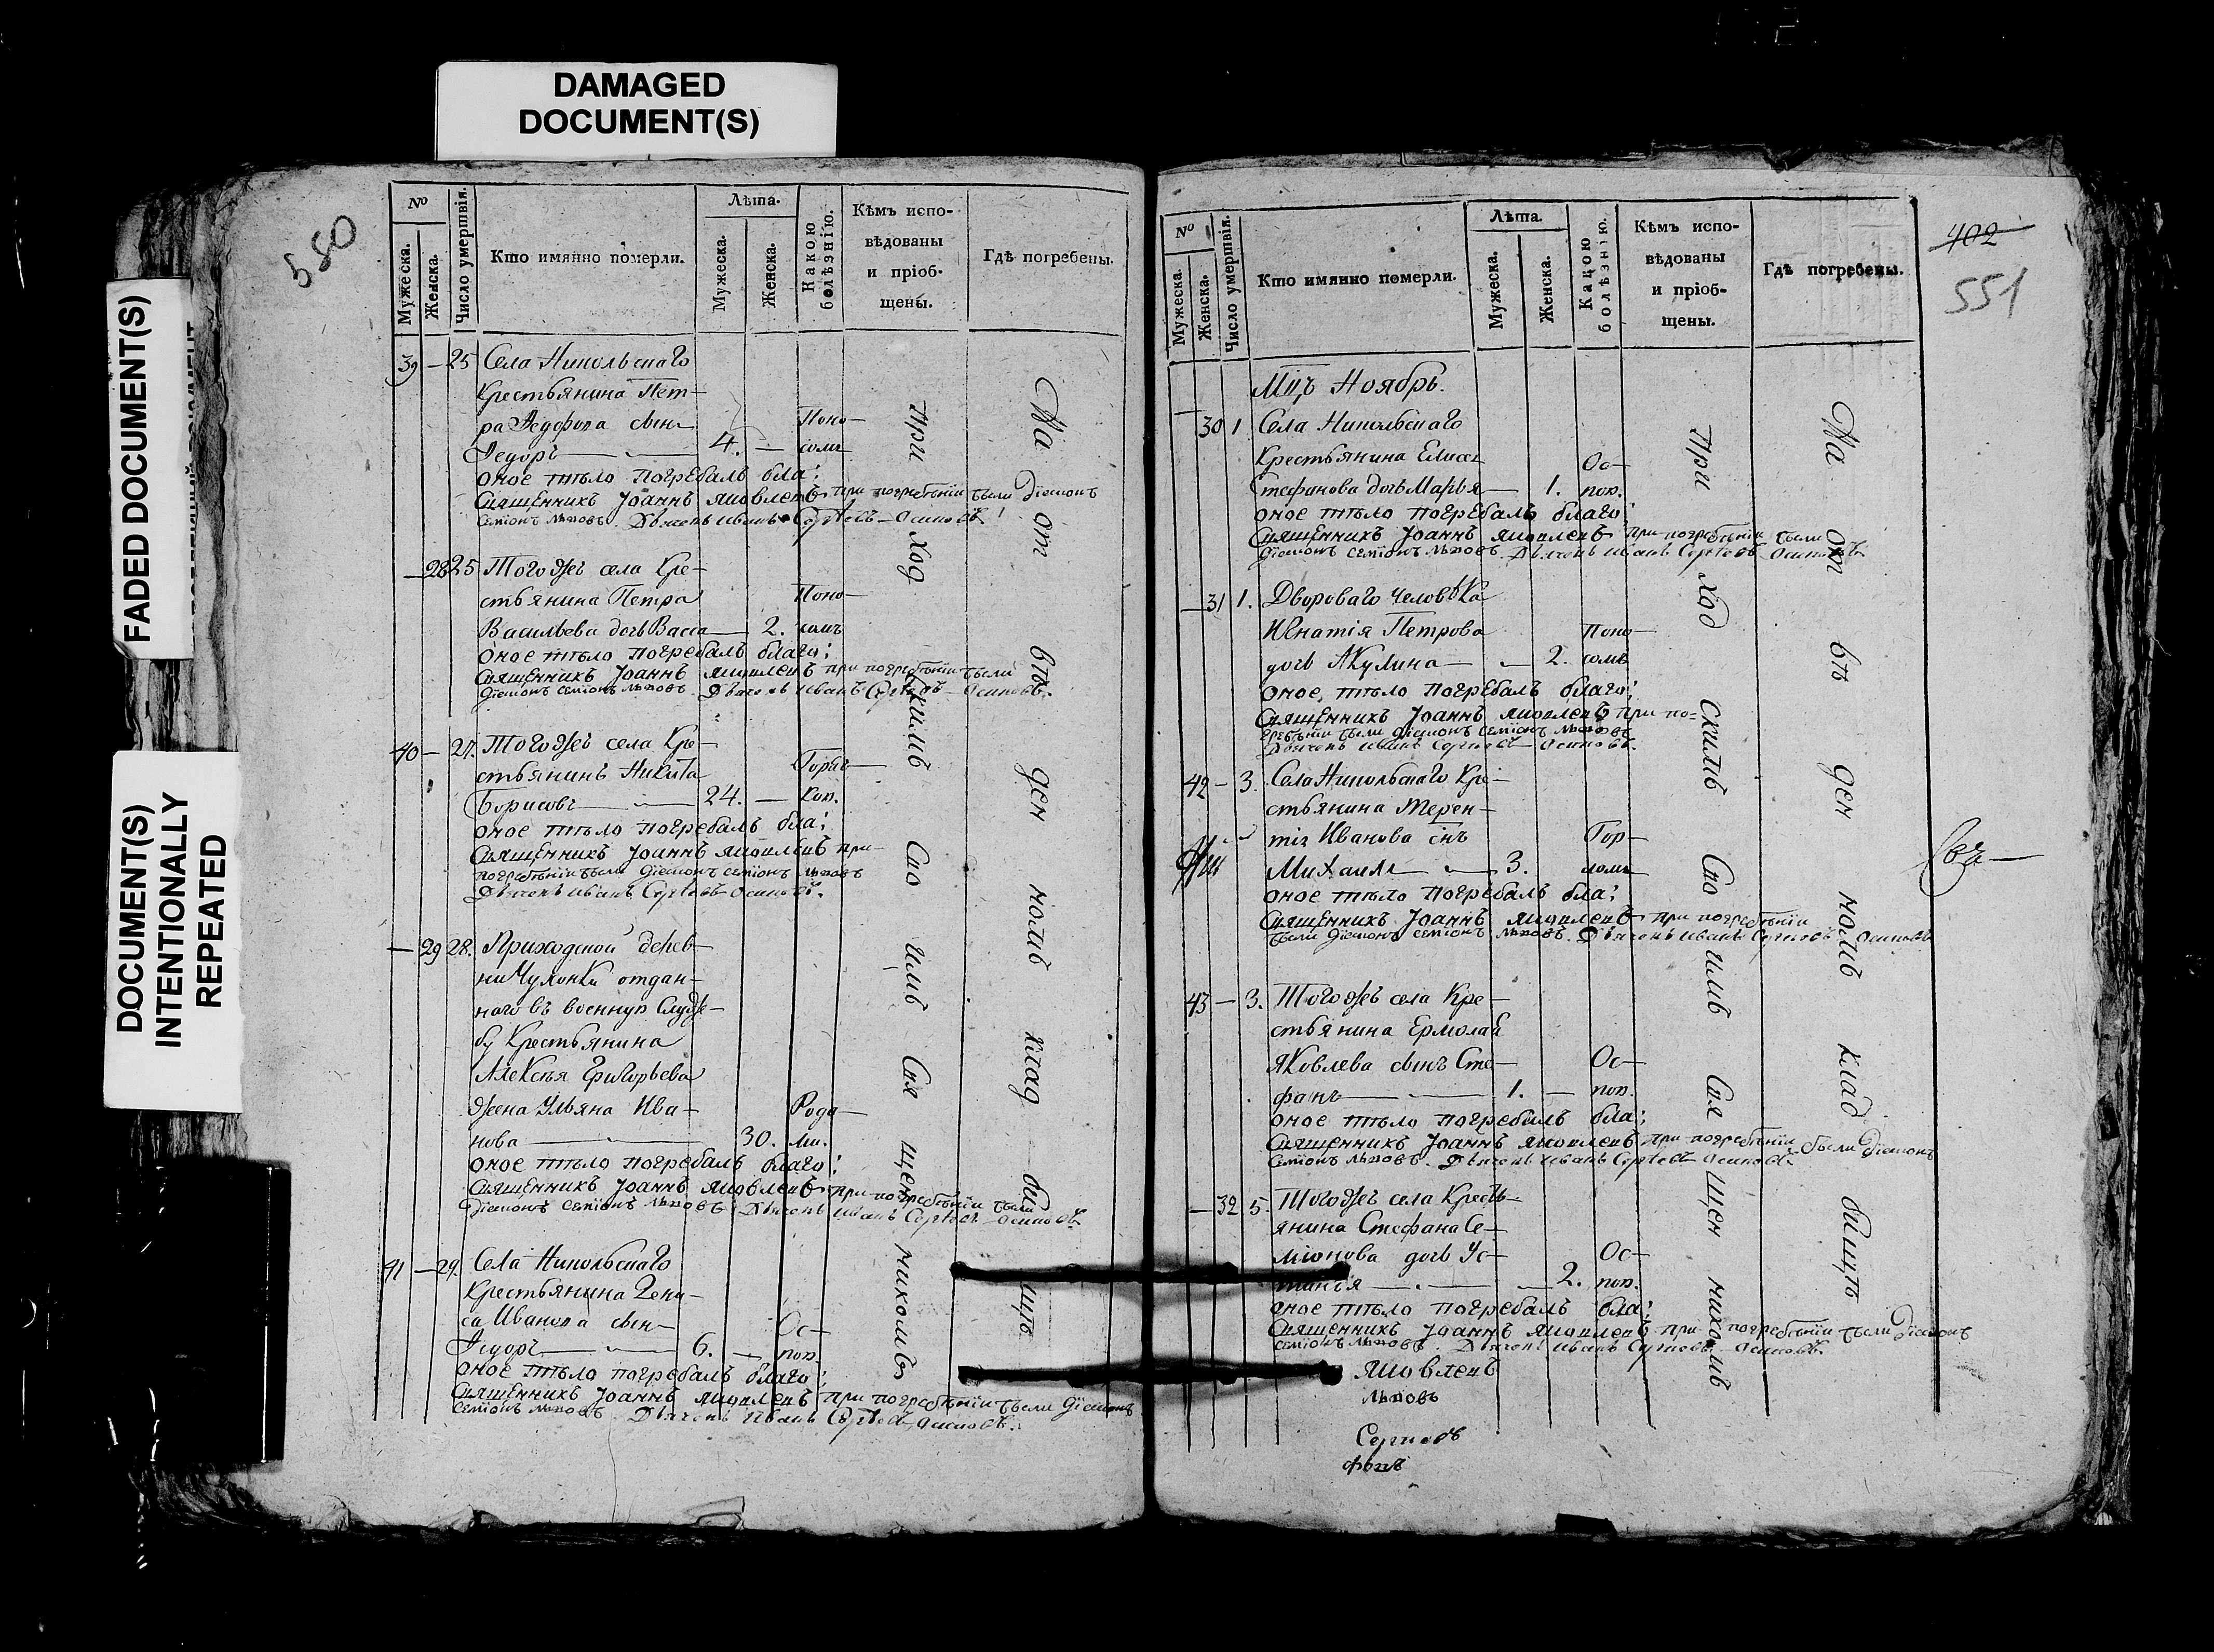 DAMAGED
DOCUMENT(S)
FADED DOCUMENT(S)
DOCUMENT(S)
INTENTIONALLY
REPEATED
550
№
Мужеска.
Женска.
Число умершвія.
Кто имянно померли.
Лѣта.
Мужеска.
Женска.
Какою болѣзнію.
Кѣмъ испо-
вѣдованы
и пріоб-
щены.
Гдѣ погребены.
39 — 25 Села Никольскаго
Крестьянина Пет-
ра Ѳедорова сынъ Поно-
Ѳедоръ 4. — сомъ
оное тѣло погребалъ бла:
Священникъ Іоаннъ Яковлевъ при погребѣніи были Діаконъ
Семіонъ Львовъ. Дьячекъ Иванъ Сергѣевъ
— 28 25 Тогожъ села Кре-
стьянина Петра Поно-
Васильева дочь Васса — 2. сомъ
оное тѣло погребалъ благо:
Священникъ Іоаннъ Яковлевъ при погребѣніи были
Діаконъ Семіонъ Львовъ. Дьячекъ Иванъ Сергѣевъ
40 — 27. Тогожъ села Кре-
стьянинъ Никита Горяч-
Борисовъ 24. — кою.
оное тѣло погребалъ бла:
Священникъ Іоаннъ Яковлевъ при
погребѣніи были Діаконъ Семіонъ Львовъ
Дьячекъ Иванъ Сергѣевъ
— 29 28. Приходской дерев-
ни Чулонки отдан-
наго въ военную служ-
бу Крестьянина
Алексѣя Григорьева
жена Ульяна Ива- Рода-
нова 30. ми.
оное тѣло погребалъ благо:
Священникъ Іоаннъ Яковлевъ при погребѣніи были
Діаконъ Семіонъ Львовъ Дьячекъ Иванъ Сергѣевъ
41 — 29. Села Никольскаго
Крестьянина Дени-
са Иванова сынъ Ос-
Ѳедоръ 6. — пою.
оное тѣло погребалъ благо:
Священникъ Іоаннъ Яковлевъ при погребѣніи были Діаконъ
Семіонъ Львовъ. Дьячекъ Иванъ Сергѣевъ
При ход скимъ Сво имъ Свя щен никомъ
На от вѣ ден номъ клад би щѣ
402
551
№
Мужеска.
Женска.
Число умершвія.
Кто имянно померли.
Лѣта.
Мужеска.
Женска.
Какою болѣзнію.
Кѣмъ испо-
вѣдованы
и пріоб-
щены.
Гдѣ погребены.
Мцъ Ноябрь.
— 30 1. Села Никольскаго
Крестьянина Елисея Ос-
Стефанова дочь Марья — 1. пою.
оное тѣло погребалъ благо:
Священникъ Іоаннъ Яковлевъ при погребѣніи были
Діаконъ Семіонъ Львовъ. Дьячекъ Иванъ Сергѣевъ
— 31 1. Двороваго человѣка
Игнатія Петрова Поно-
дочь Акулина — 2. сомъ
оное тѣло погребалъ благо:
Священникъ Іоаннъ Яковлевъ при по-
гребѣніи были Діаконъ Семіонъ Львовъ
Дьячекъ Иванъ Сергѣевъ
42 — 3. Села Никольскаго Кре-
стьянина Терен-
тія Иванова снъ Гор-
Михаилъ 3. ломъ
оное тѣло погребалъ бла:
Священникъ Іоаннъ Яковлевъ при погребѣніи
были Діаконъ Семіонъ Львовъ. Дьячекъ Иванъ Сергѣевъ
43 — 3. Тогожъ села Кре-
стьянина Ермолая
Яковлева сынъ Сте- Ос-
фанъ 1. — пою.
оное тѣло погребалъ бла:
Священникъ Іоаннъ Яковлевъ при погребѣніи были Діаконъ
Семіонъ Львовъ. Дьячекъ Иванъ Сергѣевъ
— 32 5. Тогожъ села Кресть-
янина Стефана Се-
міонова дочь Ус- Ос-
тинья — 2. пою.
оное тѣло погребалъ бла:
Священникъ Іоаннъ Яковлевъ при погребѣніи были Діаконъ
Семіонъ Львовъ. Дьячекъ Иванъ Сергѣевъ
Яковлевъ
Львовъ
Сергѣевъ
При ход скимъ Сво имъ Свя щен никомъ
На от вѣ ден номъ клад бищѣ